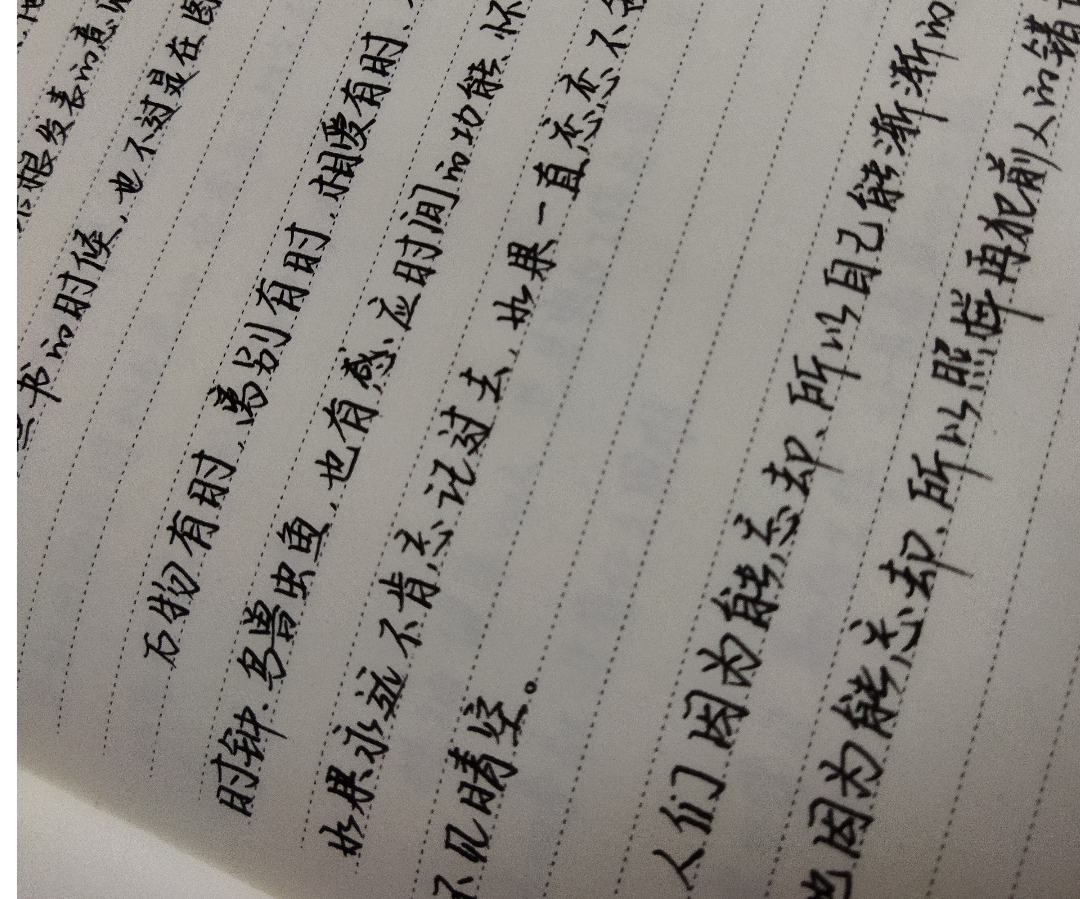 根发表的意
书的时候,也不过是在图
万物有时,离别有时,相爱有时、
时钟.鸟兽虫鱼,也有感应时间的功能、怀
如果永远不肯忘记过去,如果一直恋恋不舍
不见晴空。
人们因为能忘却、所以自己能渐渐的
也因为能忘却、所以照样再犯前人的错